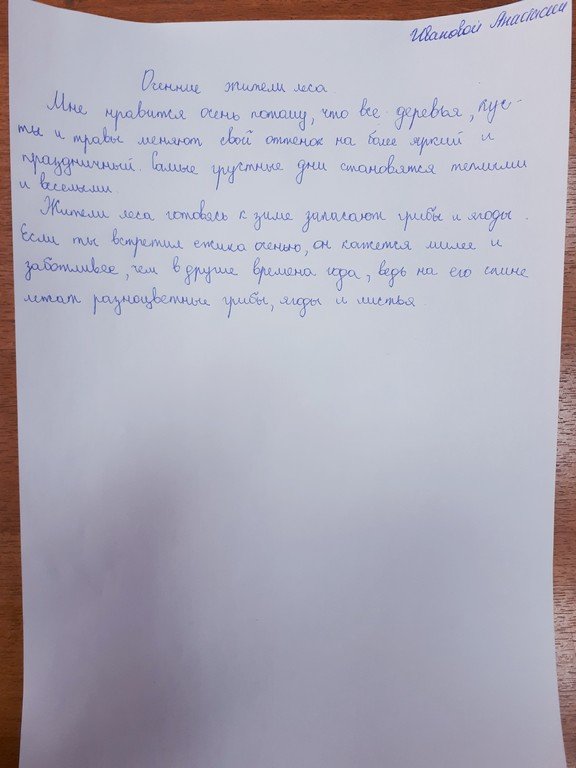 Ивановой Анастасии
Осенние жители леса.
Мне нравится осень потому, что все деревья, кус-
ты и травы меняют свой оттенок на более яркий и
праздничный. Самые грустные дни становятся теплыми
и веселыми.
Жители леса готовясь к зиме запасают грибы и ягоды.
Если ты встретил ежика осенью, он кажется милее и
заботливее, чем в другие времена года, ведь на его спине
лежат разноцветные грибы, ягоды и листья.